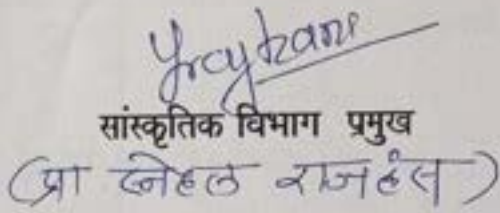 सांस्कृतिक विभाग प्रमुख
(प्रा स्नेहल राजहंस)